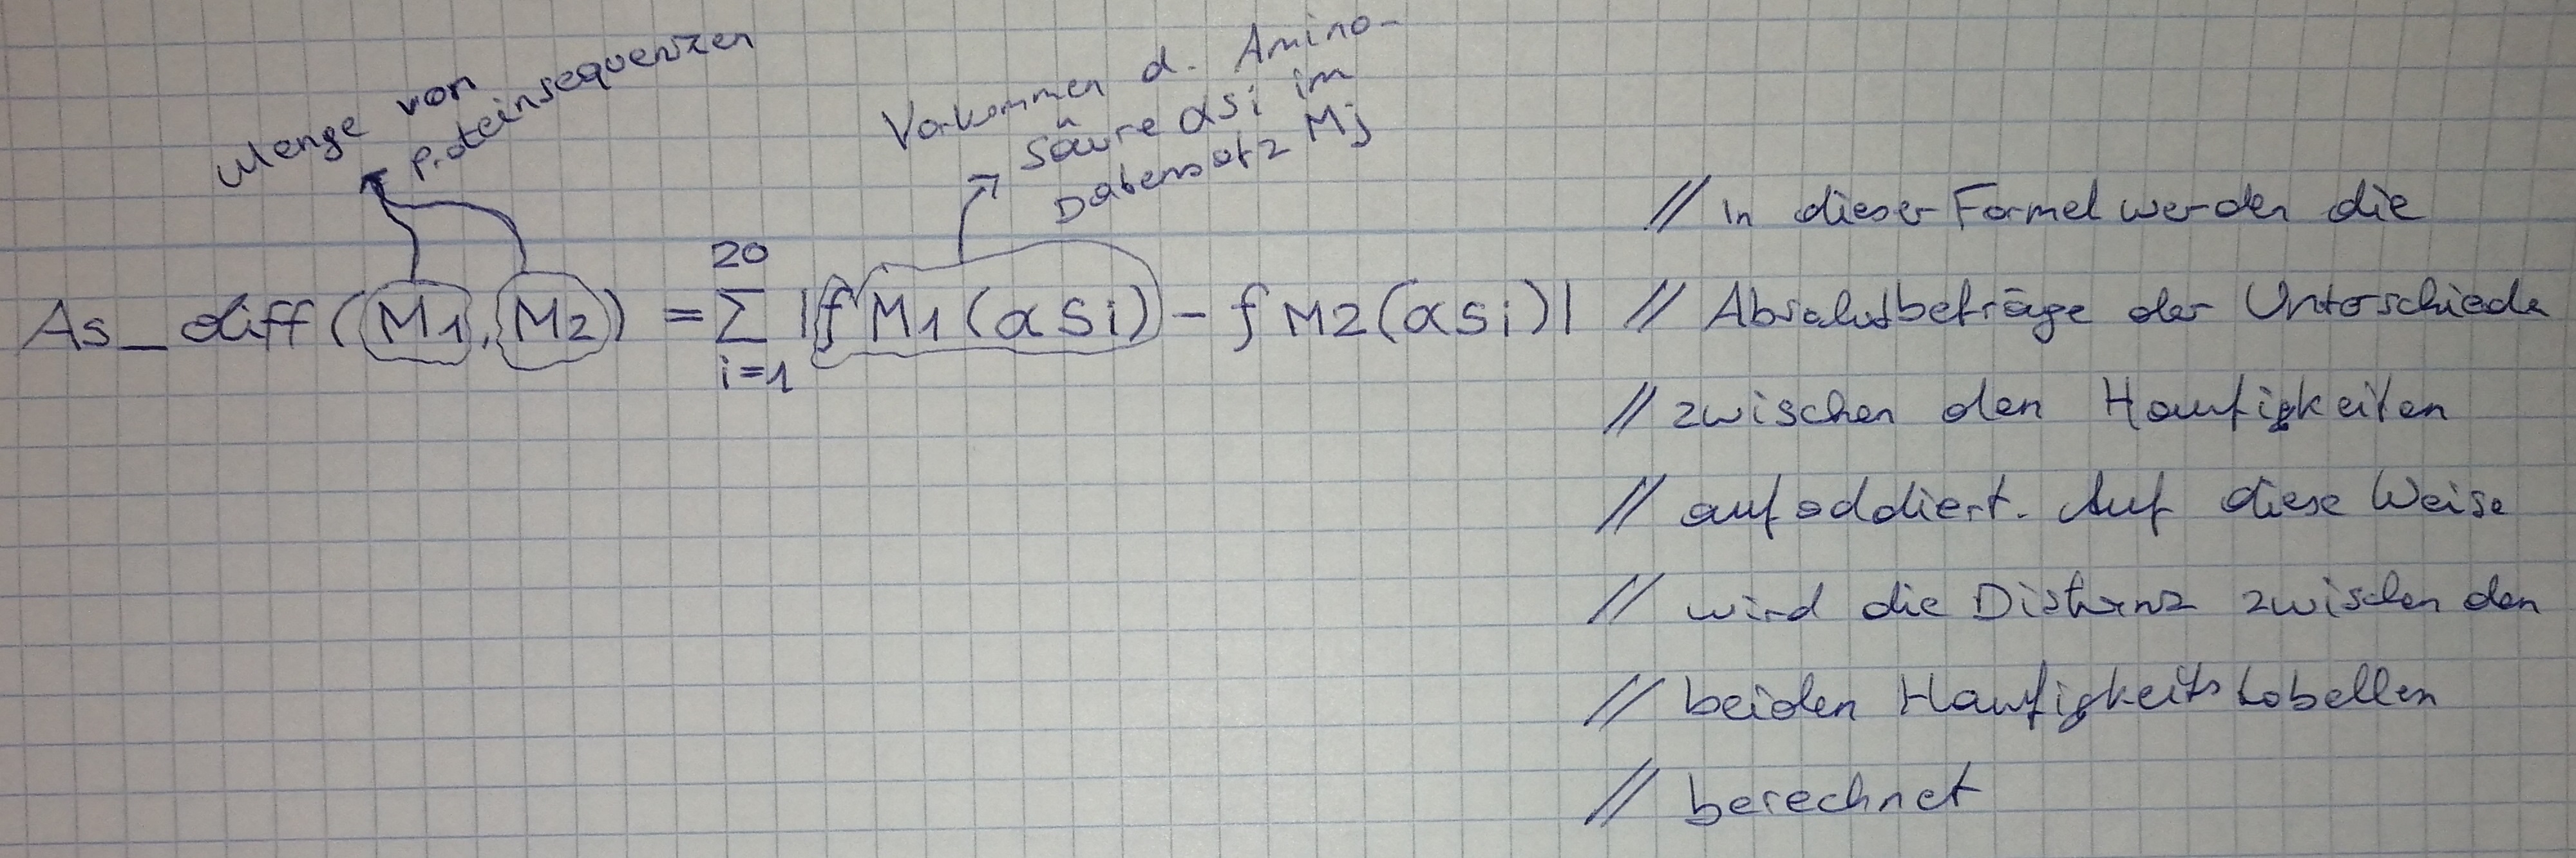 Menge von
Proteinsequenzen
Vorkommen d. Amino-
säure asi im
Datensatz Mj
As_diff(M1, M2) = 20 Σ i=1 |fM1(asi) - fM2(asi)|
// In dieser Formel werden die
// Absolutbeträge der Unterschiede
// zwischen den Haufigkeiten
// aufaddiert. Auf diese Weise
// wird die Distanz zwischen den
// beiden Haufigkeitstabellen
// berechnet